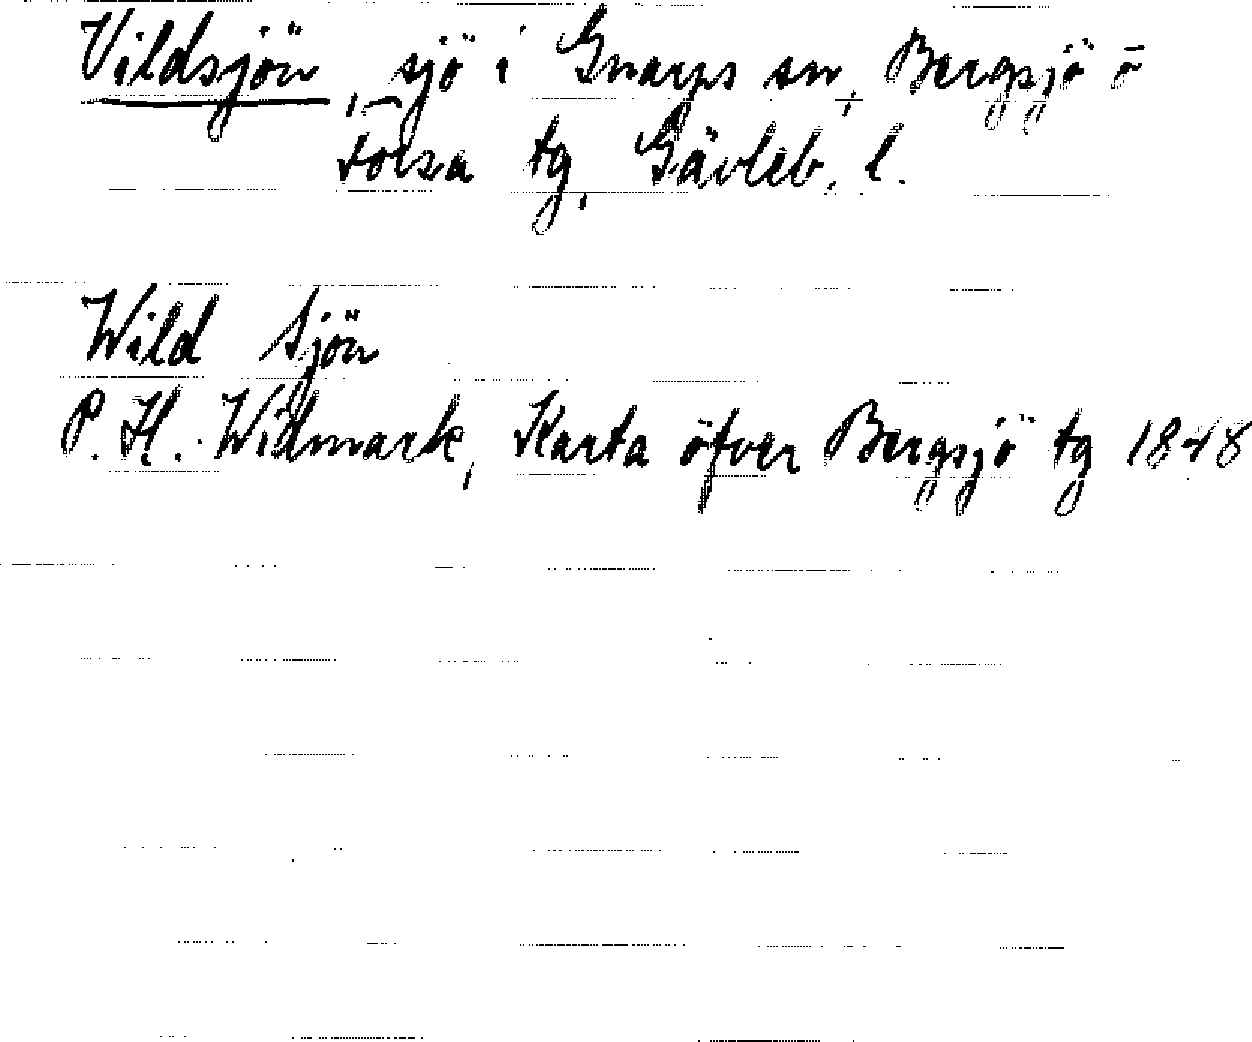 Vildsjön, sjö i Gnarps sn, Bergsjö o
Forsa tg, Gävleb. l.
Wild Sjön
P. H. Widmark, Karta öfver Bergsjö tg 1848